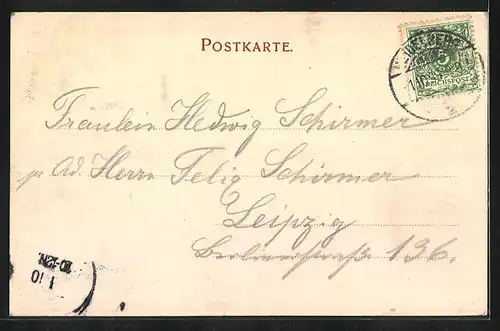 POSTKARTE.
REICHSPOST
Fräulein Hedwig Schirmer
p. Ad. Herrn Felix Schirmer
Leipzig
Berlinerstraße 136.
1/10
10-12N.